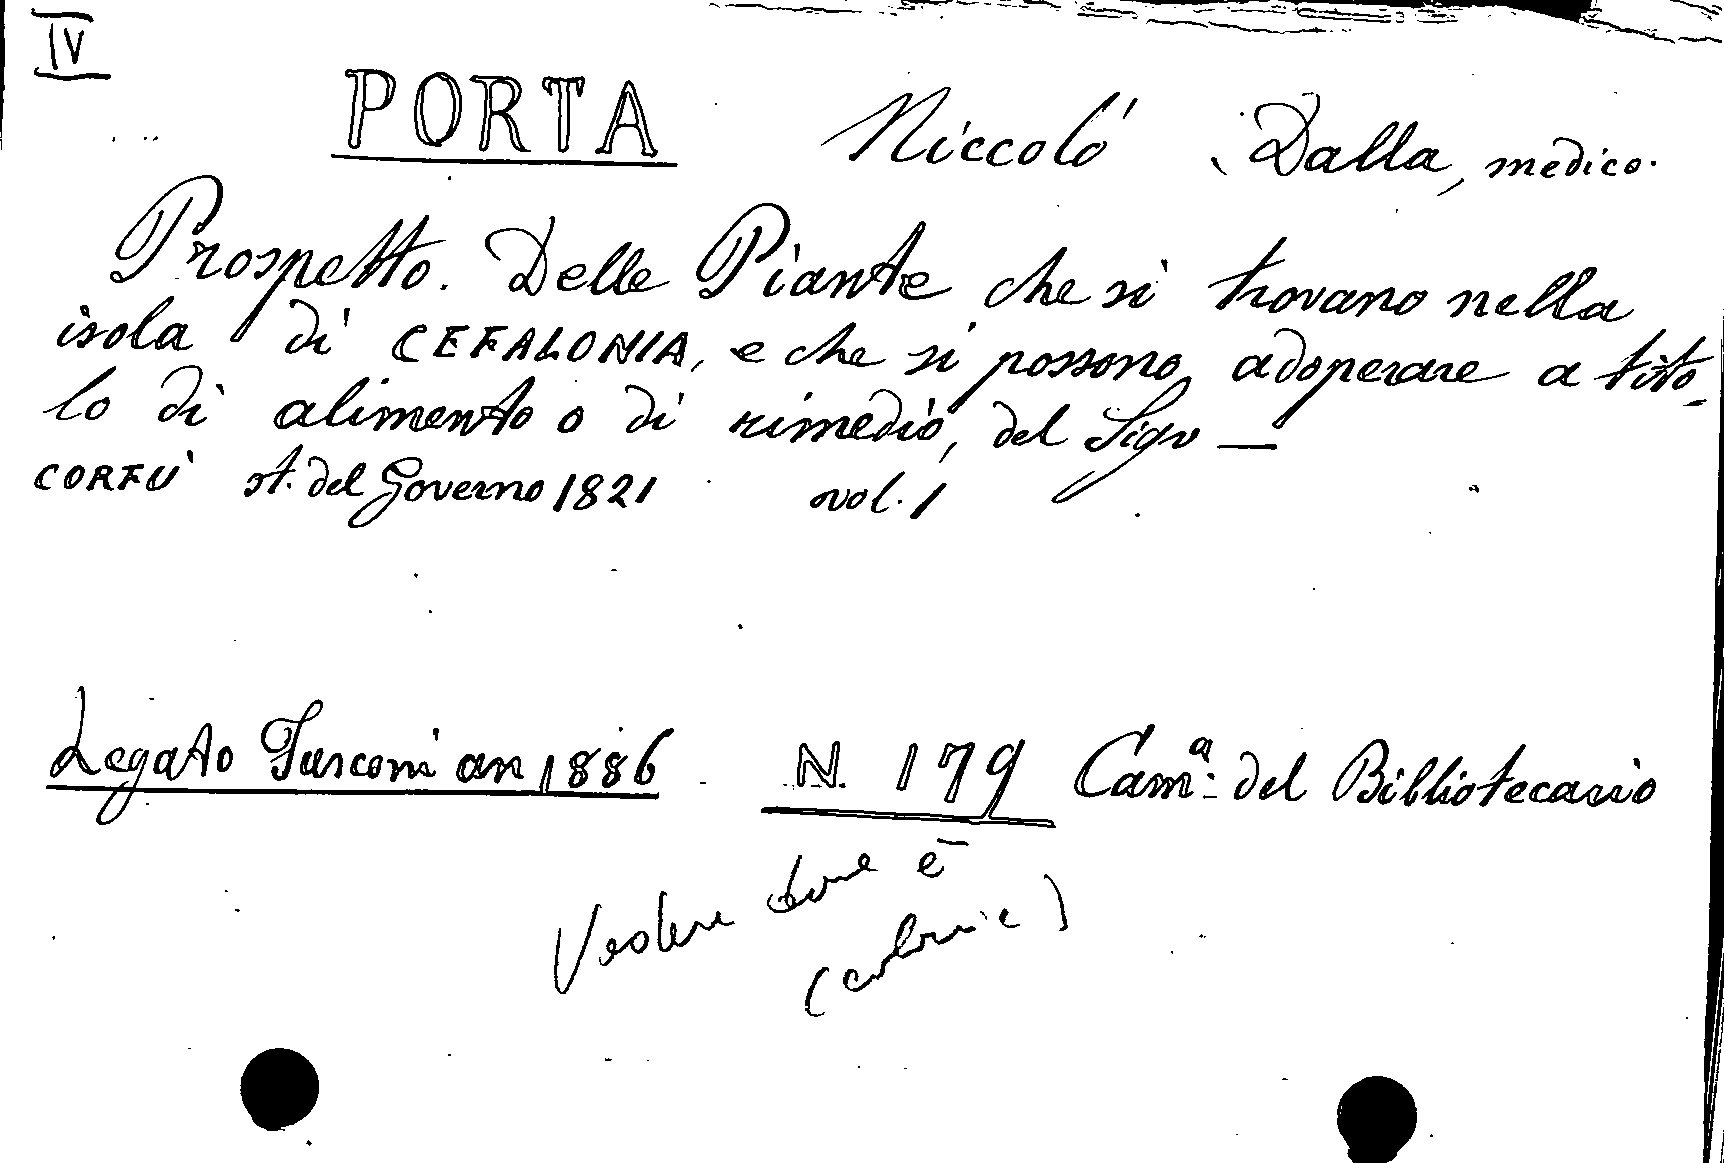 IV
PORTA Niccoló Dalla, medico.
Prospetto. Delle Piante che si trovano nella
isola di CEFALONIA, e che si possono adoperare a tito-
lo di alimento o di rimedio, del Sigr —
CORFÙ st. del Governo 1821 vol. 1
Legato Tusconi an 1886 N. 179 Cam.ª del Bibliotecario
Vedere dove è